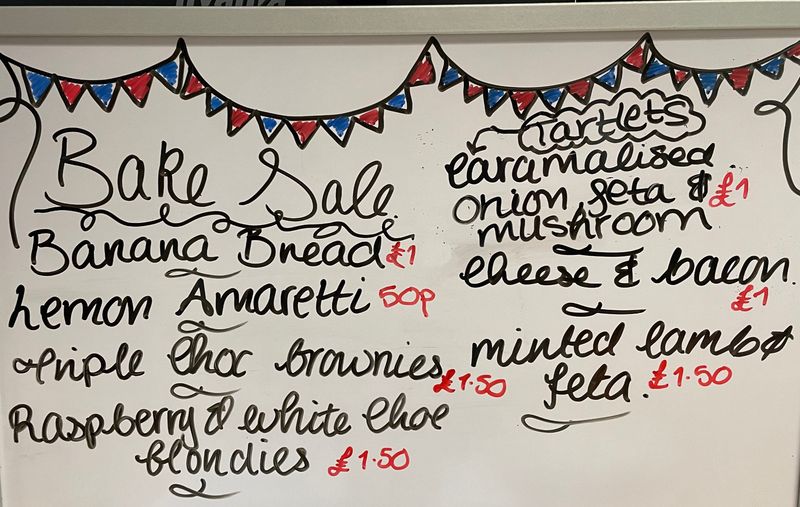 Bake Sale
Banana Bread £1
Lemon Amaretti 50p
Triple Choc brownies £1.50
Raspberry & white Choc
blondies £1.50
Tartlets
Caramalised
onion, feta & £1
mushroom
Cheese & bacon.
£1
minted lamb &
feta. £1.50